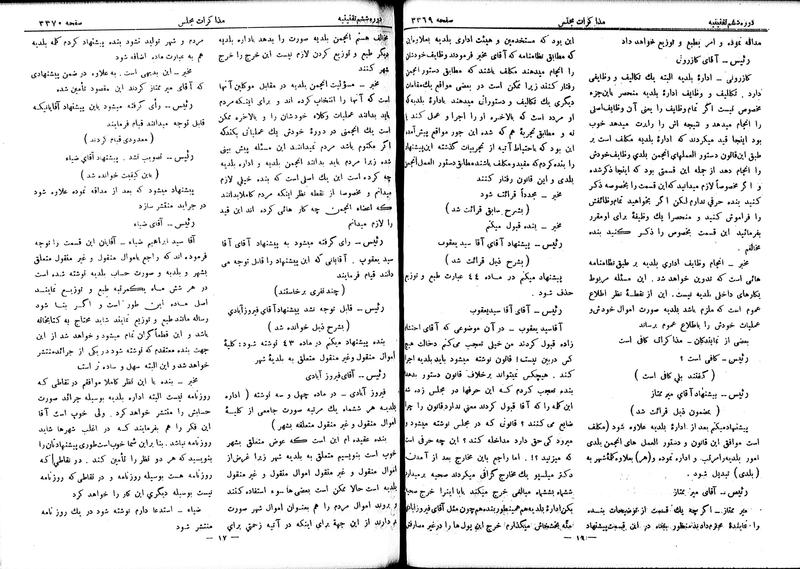 دوره ششم تقنینیه
مذاکرات مجلس
صفحه ۳۳۶۹
مداقه نموده و امر بطبع و توزیع خواهد داد
رئیس ــ آقای کازرونی
کازرونی ــ اداره بلدیه البته یک تکالیف و وظایفی
دارد . تکالیف و وظایف اداره بلدیه منحصر باین جزء
مخصوص نیست اگر تمام وظایف را یعنی آن وظایف اصلی
را انجام میدهند و نتیجه اش را راپرت میدهد خوب
بود اینجا قید میکردند که اداره بلدیه مکلف است بر
طبق این قانون دستور العملهای انجمن بلدی وظایف خودش
را انجام دهد از جمله این قسمتی بود که اینجا ذکر شده
و اگر مخصوصاً لازم میدانید که این قسمت را بخصوصه ذکر
کنید بنده حرفی ندارم لکن اگر بخواهید تمام وظائفش
را فراموش کنید و منحصراً یک وظیفهٔ برای او مقرر
بفرمائید این قسمت بخصوص را ذکر کنید بنده
مخالفم .
مخبر ــ انجام وظایف اداری بلدیه بر طبق نظامنامه
هائی است که تدوین خواهد شد . این مسئله مربوط
بکارهای داخلی بلدیه نیست . این از نقطهٔ نظر اطلاع
عموم است که ملزم باشد بلدیه صورت اموال خودش و
عملیات خودش را باطلاع عموم برساند
بعضی از نمایندگان ــ مذاکرات کافی است
رئیس ــ کافی است ؟
( گفتند بلی کافی است )
رئیس ــ پیشنهاد آقای میر ممتاز
( بمضمون ذیل قرائت شد )
پیشنهاد میکنم بعد از اداره بلدیه علاوه شود (مکلف
است موافق این قانون و دستور العمل های انجمن بلدی
(بلدی) تبدیل شود .
رئیس ــ آقای میر ممتاز
میر ممتاز ــ اگر چه یک قسمت از توضیحات بنده
را نمایندهٔ محترم دادند منظور بنده در این قسمت پیشنهاد
این بود که مستخدمین و هیئت اداری بلدیه
که مطابق نظامنامه که آقای مخبر فرمودند وظایف خودشان
را انجام میدهند مکلف باشند که مطابق دستور انجمن
رفتار کنند زیرا ممکن است در بعضی مواقع یک مقامات
دیگری یک تکالیف و دستوراتی میدهند باداره بلدیه که
او مردد است که بالاخره او را اجرا و عمل کند یا
نه و مطابق تجربهٔ هم که شده این جور مواقع پیش آمده
این بود که با احتیاط آتیه از تجربیات گذشته این پیشنهاد
را بنده کردم که مقید و مکلف باشند مطابق دستور العمل انجمن
بلدی و این قانون رفتار کنند
رئیس ــ مجدداً قرائت میشود
( بشرح سابق قرائت شد )
مخبر ــ بنده قبول میکنم
رئیس ــ پیشنهاد آقای آقا سید یعقوب
( بشرح ذیل قرائت شد )
پیشنهاد میکنم در ماده ٤٤ عبارت طبع و توزیع
حذف شود .
رئیس ــ آقای آقا سید یعقوب
آقا سید یعقوب ــ در آن موضوعی که آقای
زاده قبول کردند من خیلی تعجب میکنم
کس در بین نیست ؟ قانون نوشته میشود باید بلدیه اجرا
کند . هیچکس نمیتواند برخلاف قانون دستور بدهد
بنده تعجب کردم که این حرفها در مجلس زده شد
این کلمه را که آقا قبول کردند معنی ندارد قانون را چرا
ضایع می کنند ؟ قانونی که در مجلس نوشته میشود و
میرود کی حق دارد مداخله کند ؟ این چه حرفی است
که میزنید ؟! . اما راجع باین مخارج بعد از آمدن
دکتر میلسپو یک مخارج گزافی میکردند صحیه
ششماه بششماه مبالغی خرج میکند بابا اینرا خرج صحیه
بکن اداره بلدیه هم همینطور بنده هم چون مثل آقای فیروز آبادی
مخارج میگذارم خرج این پول ها را در غیر مصارفش
ــ ۱۶ ــ
دوره ششم تقنینیه
مذاکرات مجلس
صفحه ۳۳۷۰
مخالف هستم انجمن بلدیه صورت را بدهد باداره بلدیه
دیگر طبع و توزیع کردن لازم نیست این خرج را خرج
شهر کنند
مخبر ــ مسؤلیت انجمن بلدیه در مقابل موکلین آنها
است که آنها را انتخاب کرده اند و برای اینکه مردم
باید بدانند عملیات وکلاء خودشان را و بالاخره ممکن
است یک انجمنی در دورهٔ خودش یک عملیاتی بکند که
اگر مکتوم باشد مردم نمیدانند این مسئله پیش بینی
شده زیرا مردم باید بدانند انجمن بلدیه و اداره بلدیه
چه کرده است این یک اصلی است که بنده خیلی لازم
میدانم و مخصوصاً از نقطه نظر اینکه مردم کاملا بدانند
که اعضاء انجمن چه کار هائی کرده اند این قید
را لازم میدانم
رئیس ــ رأی گرفته میشود به پیشنهاد آقای آقا
سید یعقوب . آقایانی که این پیشنهاد را قابل توجه می
دانند قیام فرمایند
( چند نفری برخاستند )
رئیس ــ قابل توجه نشد پیشنهاد آقای فیروز آبادی
( بشرح ذیل خوانده شد )
بنده پیشنهاد میکنم در ماده ٤٣ نوشته شود : کلیهٔ
اموال منقول و غیر منقول متعلق به بلدیهٔ شهر
رئیس ــ آقای فیروز آبادی
فیروز آبادی ــ در ماده چهل و سه نوشته ( اداره
بلدیه هر ششماه یک مرتبه صورت جامعی از کلیهٔ
اموال منقول و غیر منقول متعلقه بشهر )
بنده عقیده ام این است که عوض متعلق بشهر
خوب است بنویسیم متعلق به بلدیه شهر زیرا غرض از
اموال منقول و غیر منقول اموال منقول و غیر منقول
بلدیه است حالا ممکن است بعضی ها سوء استفاده کنند
و بروند اموال مردم را هم بعنوان اموال شهر صورت
بر دارند از این جهة برای اینکه در آتیه زحمتی برای
مردم و شهر تولید نشود بنده پیشنهاد کردم کله بلدیه
هم به عبارت ماده اضافه شود
مخبر ــ این بدیهی است . به علاوه در ضمن پیشنهادی
که آقای میر ممتاز کردند این مقصود تأمین شده
رئیس ــ رأی گرفته میشود باین پیشنهاد آقایانیکه
قابل توجه میدانند قیام فرمایند
( معدودی قیام کردند )
رئیس ــ تصویب نشد . پیشنهاد آقای ضیاء
( باین کیفیت خوانده شد )
پیشنهاد میشود که بعد از مداقه نموده علاوه شود
در جراید منتشر سازد
رئیس ــ آقای ضیاء
آقا سید ابراهیم ضیاء ــ آقایان این قسمت را توجه
فرموده اند که راجع باموال منقول و غیر منقول متعلق
بشهر و بلدیه و صورت حساب بلدیه نوشته شده است
در هر شش ماه یکمرتبه طبع و توزیع نمایند
اصل ماده این طور است و اگر بنا شود
رساله مانند طبع و توزیع نمایند شاید محتاج به کتابخانه
باشد و این قطعاً گران تمام میشود و خواهد شد از این
جهت بنده معتقدم که نوشته شود در یکی از جراید منتشر
خواهد شد و این البته سهل و ساده تر است
مخبر ــ بنده با این نظر کاملا موافقم در نقاطی که
روزنامه نیست البته اداره بلدیه بوسیله جرائد صورت
حسابش را منتشر خواهد کرد . ولی خوب است آقا
این فکر را هم بفرمایند که در اغلب شهرها شاید
روزنامه نباشد . بنابر این شما خوب است طوری پیشنهادتان را
بنویسید که هر دو نظر را تأمین کنند . در نقاطی که
روزنامه هست بوسیله روزنامه و در نقاطی که روزنامه
نیست بوسیله دیگری این کار را خواهد کرد
ضیاء ــ استدعا دارم نوشته شود در یک روز نامه
منتشر شود
ــ ۱۷ ــ